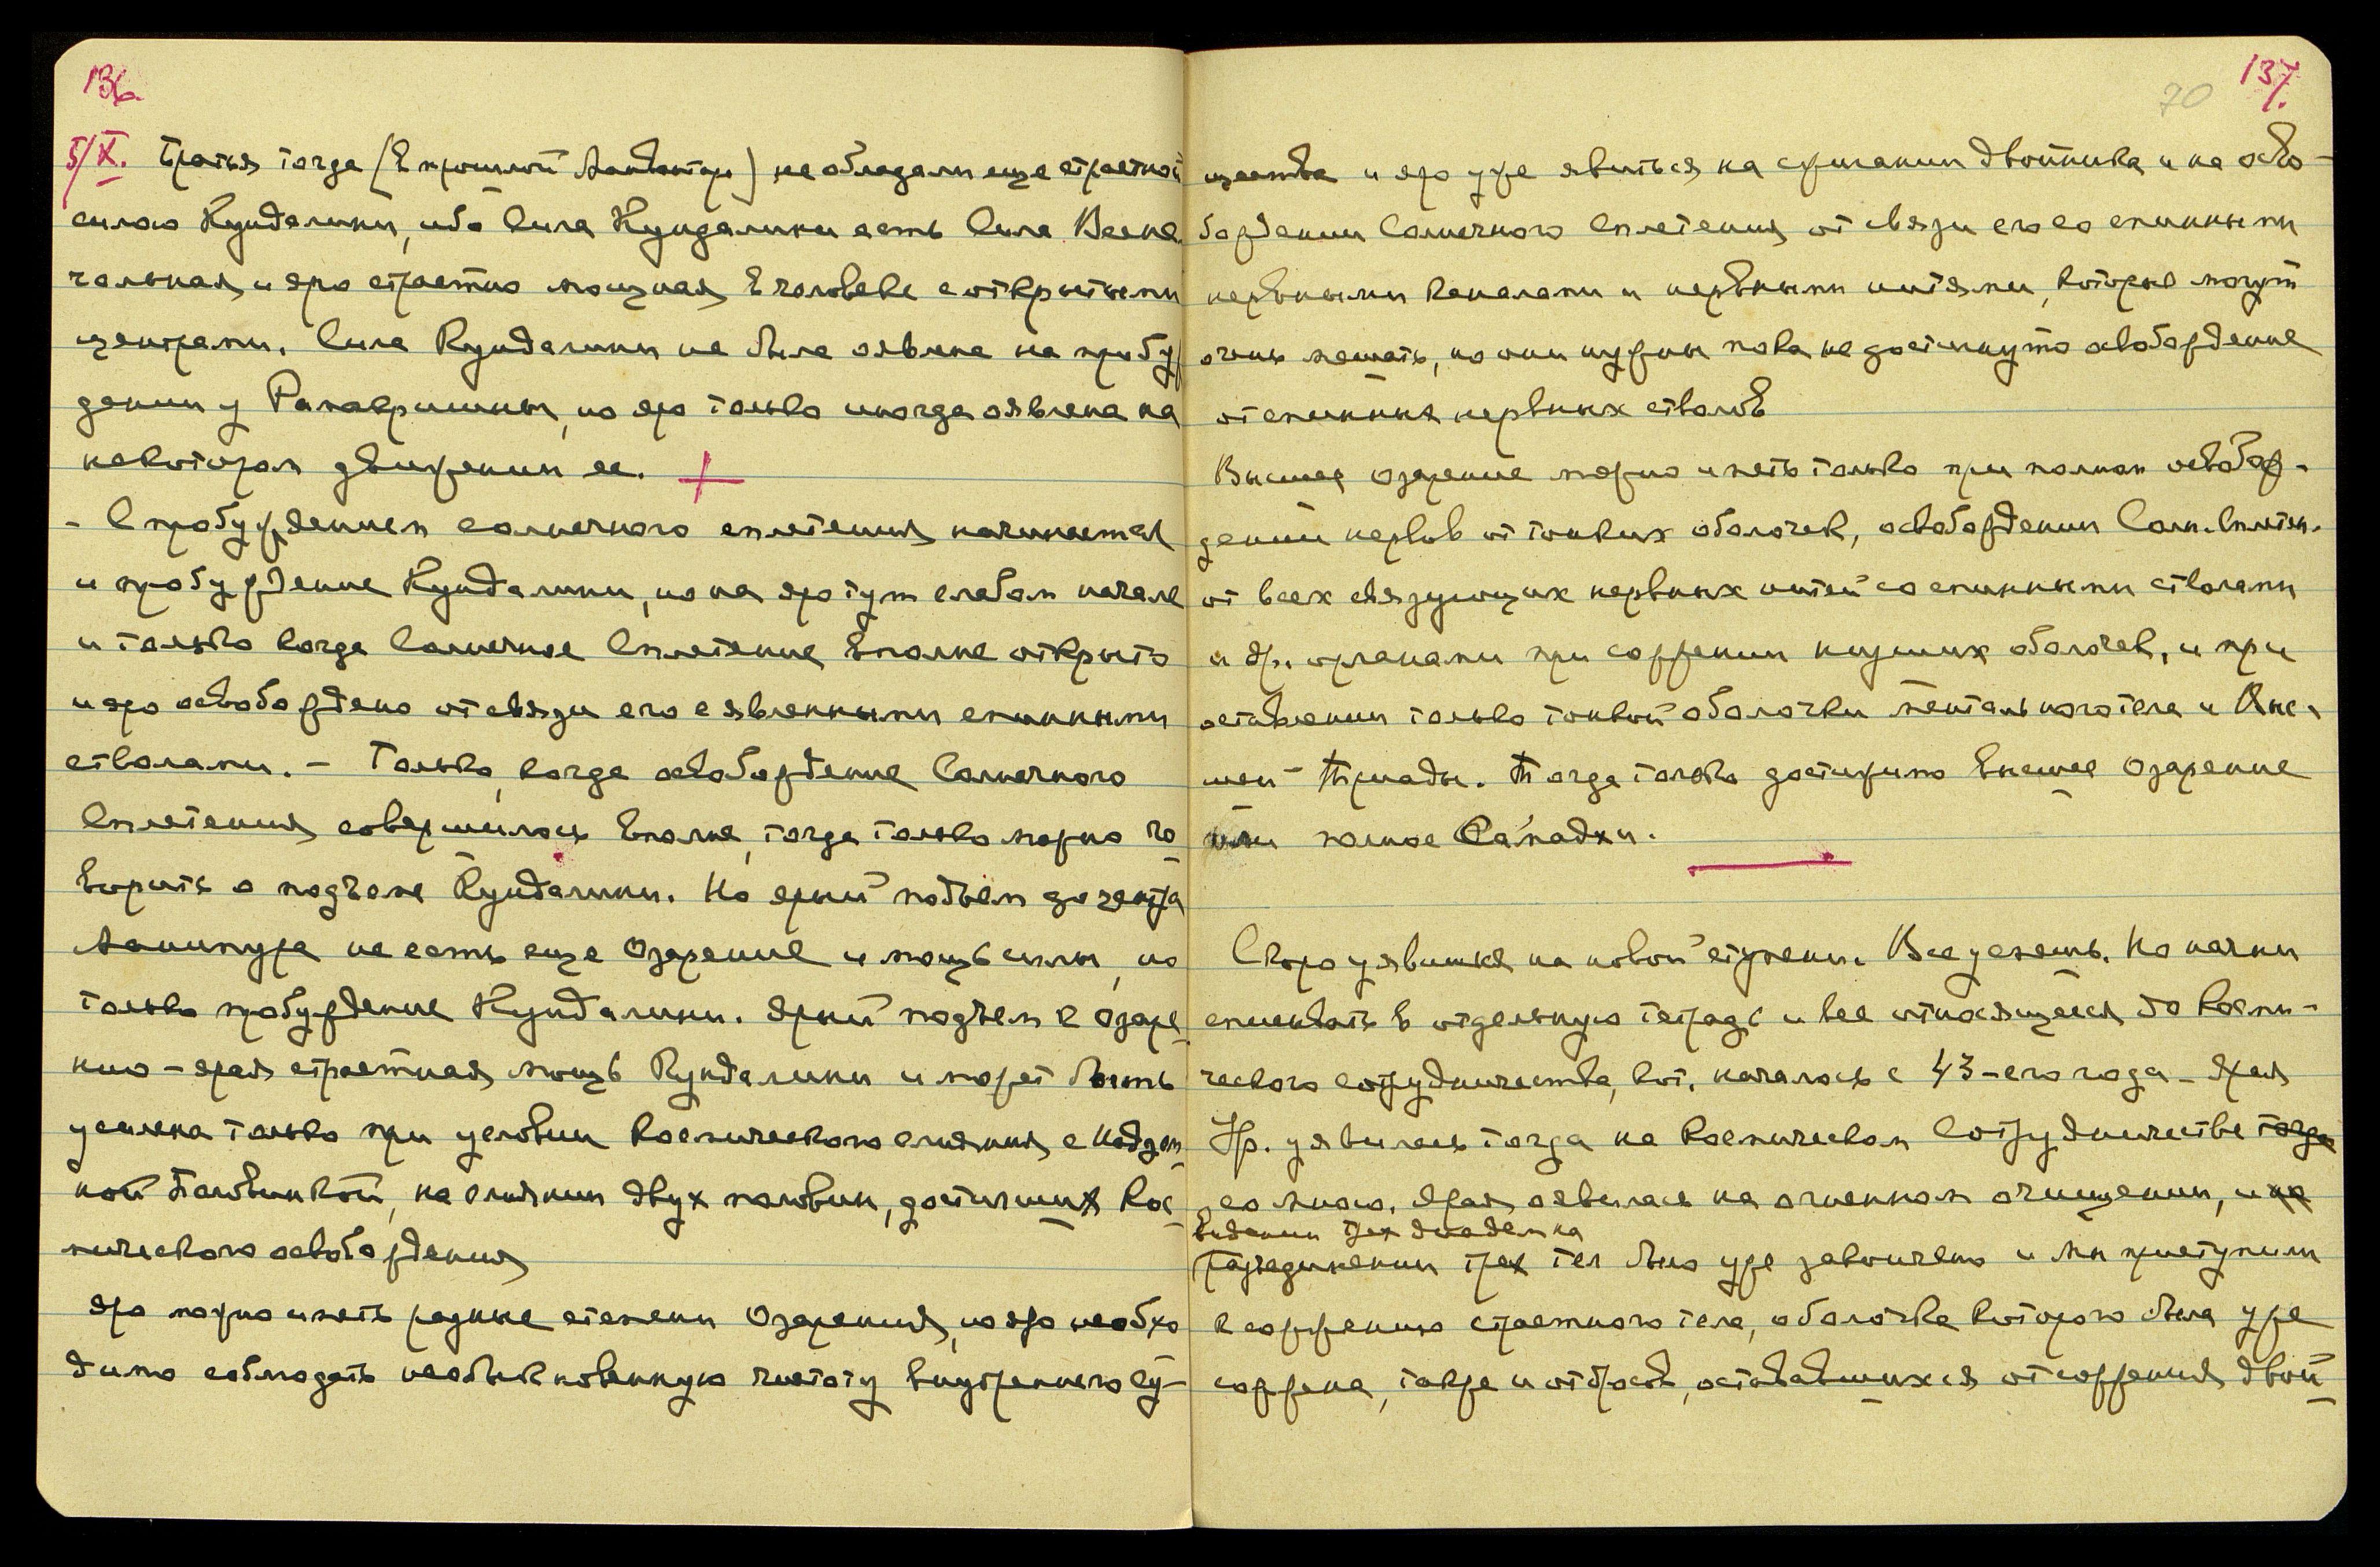 136.
5/X. Братья тогда (в прошлой Манвантаре) не обладали еще страстной
силою Кундалини, ибо Сила Кундалини есть Сила Всена
чальная и яро страстно мощная в человеке с открытыми
центрами. Сила Кундалини не была оявлена на пробуж
дении у Рамакришны, но яро только иногда оявлена на
некотором движении ее. +
- С пробуждением солнечного сплетения начинается
и пробуждение Кундалини, но на яро тут слабом начале
и только когда Солнечное Сплетение вполне открыто
и яро освобождено от связи его с явленными спинными
стволами. – Только, когда освобождение Солнечного
Сплетения совершилось вполне, тогда только можно го
ворить о подъеме Кундалини. Но ярый подъем до центра
Манипура не есть еще Озарение и мощь силы, но
только пробуждение Кундалини. Ярый подъем к Озаре
нию – ярая страстная мощь Кундалини и может быть
усилена только при условии Космического слияния с Надзем
ной Половинкой, на слиянии двух половин, достигших Кос
мического освобождения
Яро можно иметь разные степени Озарения, но яро необхо
димо соблюдать необыкновенную чистоту внутреннего су-
70
137.
щества и яро уже явиться на сжигании двойника и на осво-
бождении Солнечного Сплетения от связи его со спинными
нервными каналами и нервными нитями, которые могут
очень мешать, но они нужны пока не достигнуто освобождение
от спинных нервных стволов
Высшее Озарение можно иметь только при полном освобож-
дении нервов от тонких оболочек, освобождении Солн. Сплетен.
от всех связующих нервных нитей со спинными стволами
и др. органами при сожжении низших оболочек, и при
оставлении только тонкой оболочки ментального тела и Выс-
шей Триады. Тогда только достижимо высшее Озарение
или полное Самадхи.
Скоро уявишься на новой ступени. Все успеешь. Но начни
списывать в отдельную тетрадь и все относящееся до Косми-
ческого сотрудничества, кот. началось с 43-его года – Ярая
Ур. уявилась тогда на Космическом Сотрудничестве тогда
со мною. Ярая оявилась на огненном очищении, и на
видении трех диадем на
разъединении трех тел было уже закончено и Мы приступили
к сожжению страстного тела, оболочка которого была уже
сожжена, также и отбросов, остававшихся от сожжения двой